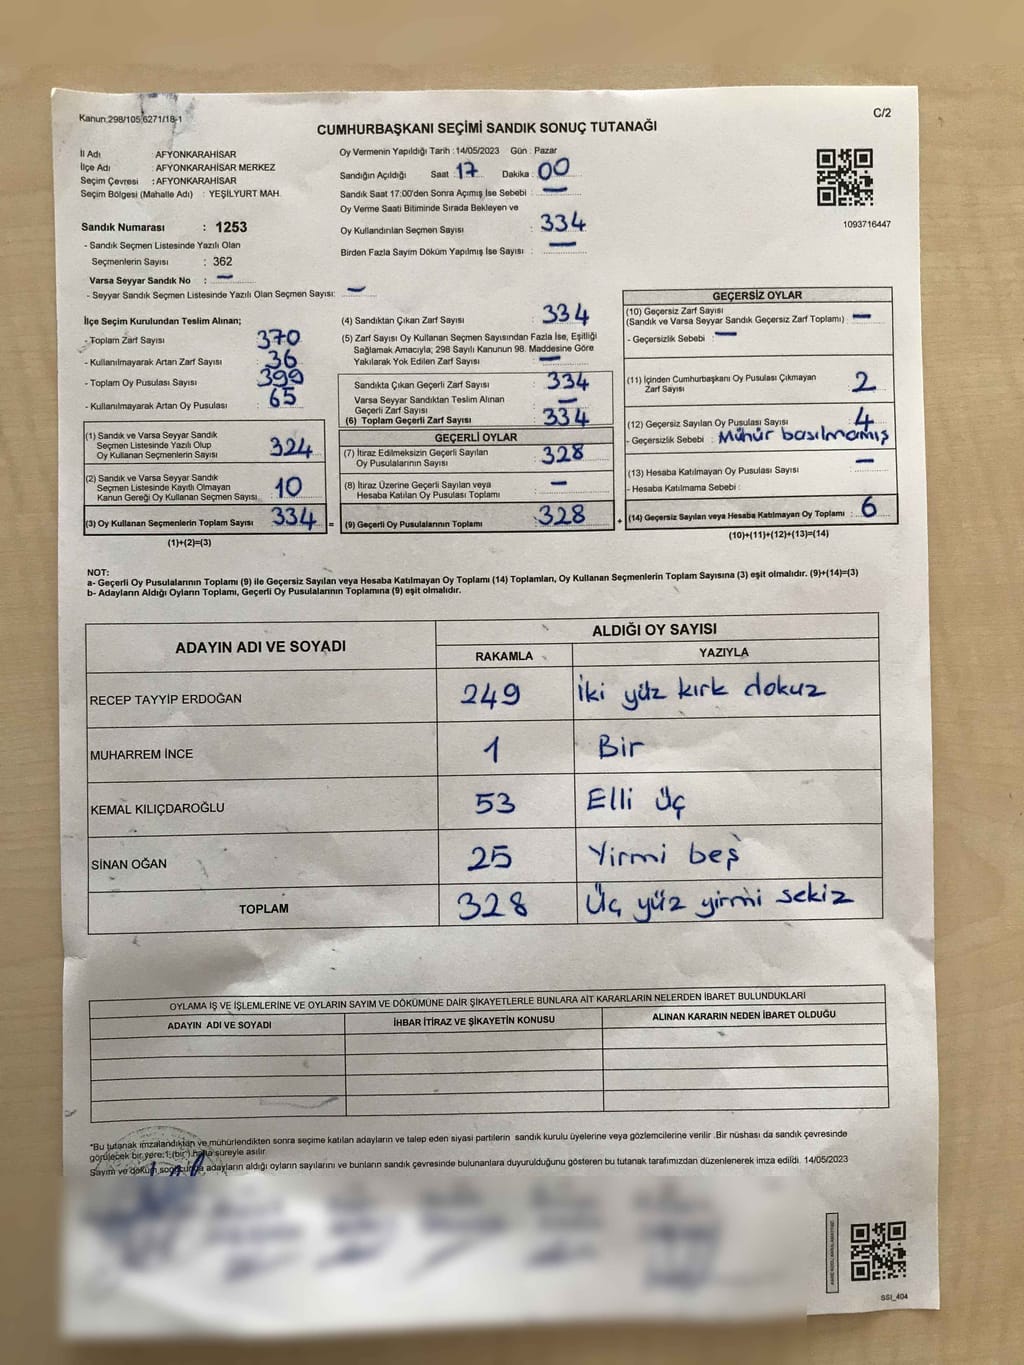 Kanun:298/105,6271/18-1
C/2
CUMHURBAŞKANI SEÇİMİ SANDIK SONUÇ TUTANAĞI
İl Adı : AFYONKARAHİSAR
İlçe Adı : AFYONKARAHİSAR MERKEZ
Seçim Çevresi : AFYONKARAHİSAR
Seçim Bölgesi (Mahalle Adı) : YEŞİLYURT MAH.
Sandık Numarası : 1253
- Sandık Seçmen Listesinde Yazılı Olan
Seçmenlerin Sayısı : 362
Varsa Seyyar Sandık No : —
- Seyyar Sandık Seçmen Listesinde Yazılı Olan Seçmen Sayısı: —
Oy Vermenin Yapıldığı Tarih :14/05/2023 Gün : Pazar
Sandığın Açıldığı Saat : 17 Dakika : 00
Sandık Saat 17:00'den Sonra Açımış İse Sebebi : —
Oy Verme Saati Bitiminde Sırada Bekleyen ve
Oy Kullandırılan Seçmen Sayısı : 334
Birden Fazla Sayım Döküm Yapılmış İse Sayısı : —
1093716447
İlçe Seçim Kurulundan Teslim Alınan;
- Toplam Zarf Sayısı : 370
- Kullanılmayarak Artan Zarf Sayısı : 36
- Toplam Oy Pusulası Sayısı : 399
- Kullanılmayarak Artan Oy Pusulası : 65
(1) Sandık ve Varsa Seyyar Sandık
Seçmen Listesinde Yazılı Olup
Oy Kullanan Seçmenlerin Sayısı : 324
(2) Sandık ve Varsa Seyyar Sandık
Seçmen Listesinde Kayıtlı Olmayan
Kanun Gereği Oy Kullanan Seçmen Sayısı : 10
(3) Oy Kullanan Seçmenlerin Toplam Sayısı : 334 =
(1)+(2)=(3)
(4) Sandıktan Çıkan Zarf Sayısı : 334
(5) Zarf Sayısı Oy Kullanan Seçmen Sayısından Fazla İse, Eşitliği
Sağlamak Amacıyla; 298 Sayılı Kanunun 98. Maddesine Göre
Yakılarak Yok Edilen Zarf Sayısı : —
Sandıkta Çıkan Geçerli Zarf Sayısı : 334
Varsa Seyyar Sandıktan Teslim Alınan
Geçerli Zarf Sayısı : —
(6) Toplam Geçerli Zarf Sayısı : 334
GEÇERLİ OYLAR
(7) İtiraz Edilmeksizin Geçerli Sayılan
Oy Pusulalarının Sayısı : 328
(8) İtiraz Üzerine Geçerli Sayılan veya
Hesaba Katılan Oy Pusulası Toplamı : —
(9) Geçerli Oy Pusulalarının Toplamı : 328 +
GEÇERSİZ OYLAR
(10) Geçersiz Zarf Sayısı
(Sandık ve Varsa Seyyar Sandık Geçersiz Zarf Toplamı) : —
- Geçersizlik Sebebi : —
(11) İçinden Cumhurbaşkanı Oy Pusulası Çıkmayan
Zarf Sayısı : 2
(12) Geçersiz Sayılan Oy Pusulası Sayısı : 4
- Geçersizlik Sebebi : Mühür basılmamış
(13) Hesaba Katılmayan Oy Pusulası Sayısı : —
- Hesaba Katılmama Sebebi :
(14) Geçersiz Sayılan veya Hesaba Katılmayan Oy Toplamı : 6
(10)+(11)+(12)+(13)=(14)
NOT:
a- Geçerli Oy Pusulalarının Toplamı (9) ile Geçersiz Sayılan veya Hesaba Katılmayan Oy Toplamı (14) Toplamları, Oy Kullanan Seçmenlerin Toplam Sayısına (3) eşit olmalıdır. (9)+(14)=(3)
b- Adayların Aldığı Oyların Toplamı, Geçerli Oy Pusulalarının Toplamına (9) eşit olmalıdır.
ADAYIN ADI VE SOYADI
ALDIĞI OY SAYISI
RAKAMLA YAZIYLA
RECEP TAYYİP ERDOĞAN 249 İki yüz kırk dokuz
MUHARREM İNCE 1 Bir
KEMAL KILIÇDAROĞLU 53 Elli Üç
SİNAN OĞAN 25 Yirmi beş
TOPLAM 328 Üç yüz yirmi sekiz
OYLAMA İŞ VE İŞLEMLERİNE VE OYLARIN SAYIM VE DÖKÜMÜNE DAİR ŞİKAYETLERLE BUNLARA AİT KARARLARIN NELERDEN İBARET BULUNDUKLARI
ADAYIN ADI VE SOYADI İHBAR İTİRAZ VE ŞİKAYETİN KONUSU ALINAN KARARIN NEDEN İBARET OLDUĞU
*Bu tutanak imzalandıktan ve mühürlendikten sonra seçime katılan adayların ve talep eden siyasi partilerin sandık kurulu üyelerine veya gözlemcilerine verilir .Bir nüshası da sandık çevresinde
görülecek bir yere 1 (bir) hafta süreyle asılır.
Sayım ve döküm sonucunda adayların aldığı oyların sayılarını ve bunların sandık çevresinde bulunanlara duyurulduğunu gösteren bu tutanak tarafımızdan düzenlenerek imza edildi. 14/05/2023
SSI_404